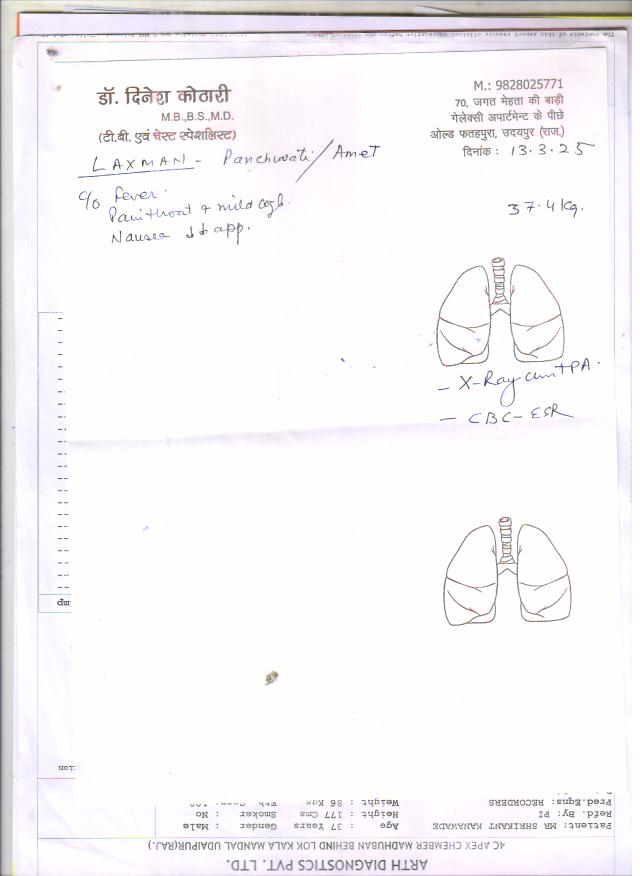 The contents of this report require clinical
डॉ. दिनेश कोठारी
M.B.,B.S.,M.D.
(टी.बी. एवं चेस्ट स्पेशलिस्ट)
M.: 9828025771
70, जगत मेहता की बाड़ी
गेलेक्सी अपार्टमेन्ट के पीछे
ओल्ड फतहपुरा, उदयपुर (राज.)
दिनांक : 13.3.25
LAXMAN - Panchwati/Amet
C/o Fever.
Pain throat & mild cough.
Nausea ↓↓ app.
37.4 kg.
- X-Ray PA.
- CBC - ESR
ARTH DIAGNOSTICS PVT. LTD.
4C APEX CHEMBER MADHUBAN BEHIND LOK KALA MANDAL UDAIPUR(RAJ.)
Patient: MR SHRIKANT KANAWANE Age : 37 Years Gender : Male
Refd. By: PI Height : 177 Cms Smoker : No
Pred.Eqns: RECORDERS Weight : 86 Kgs